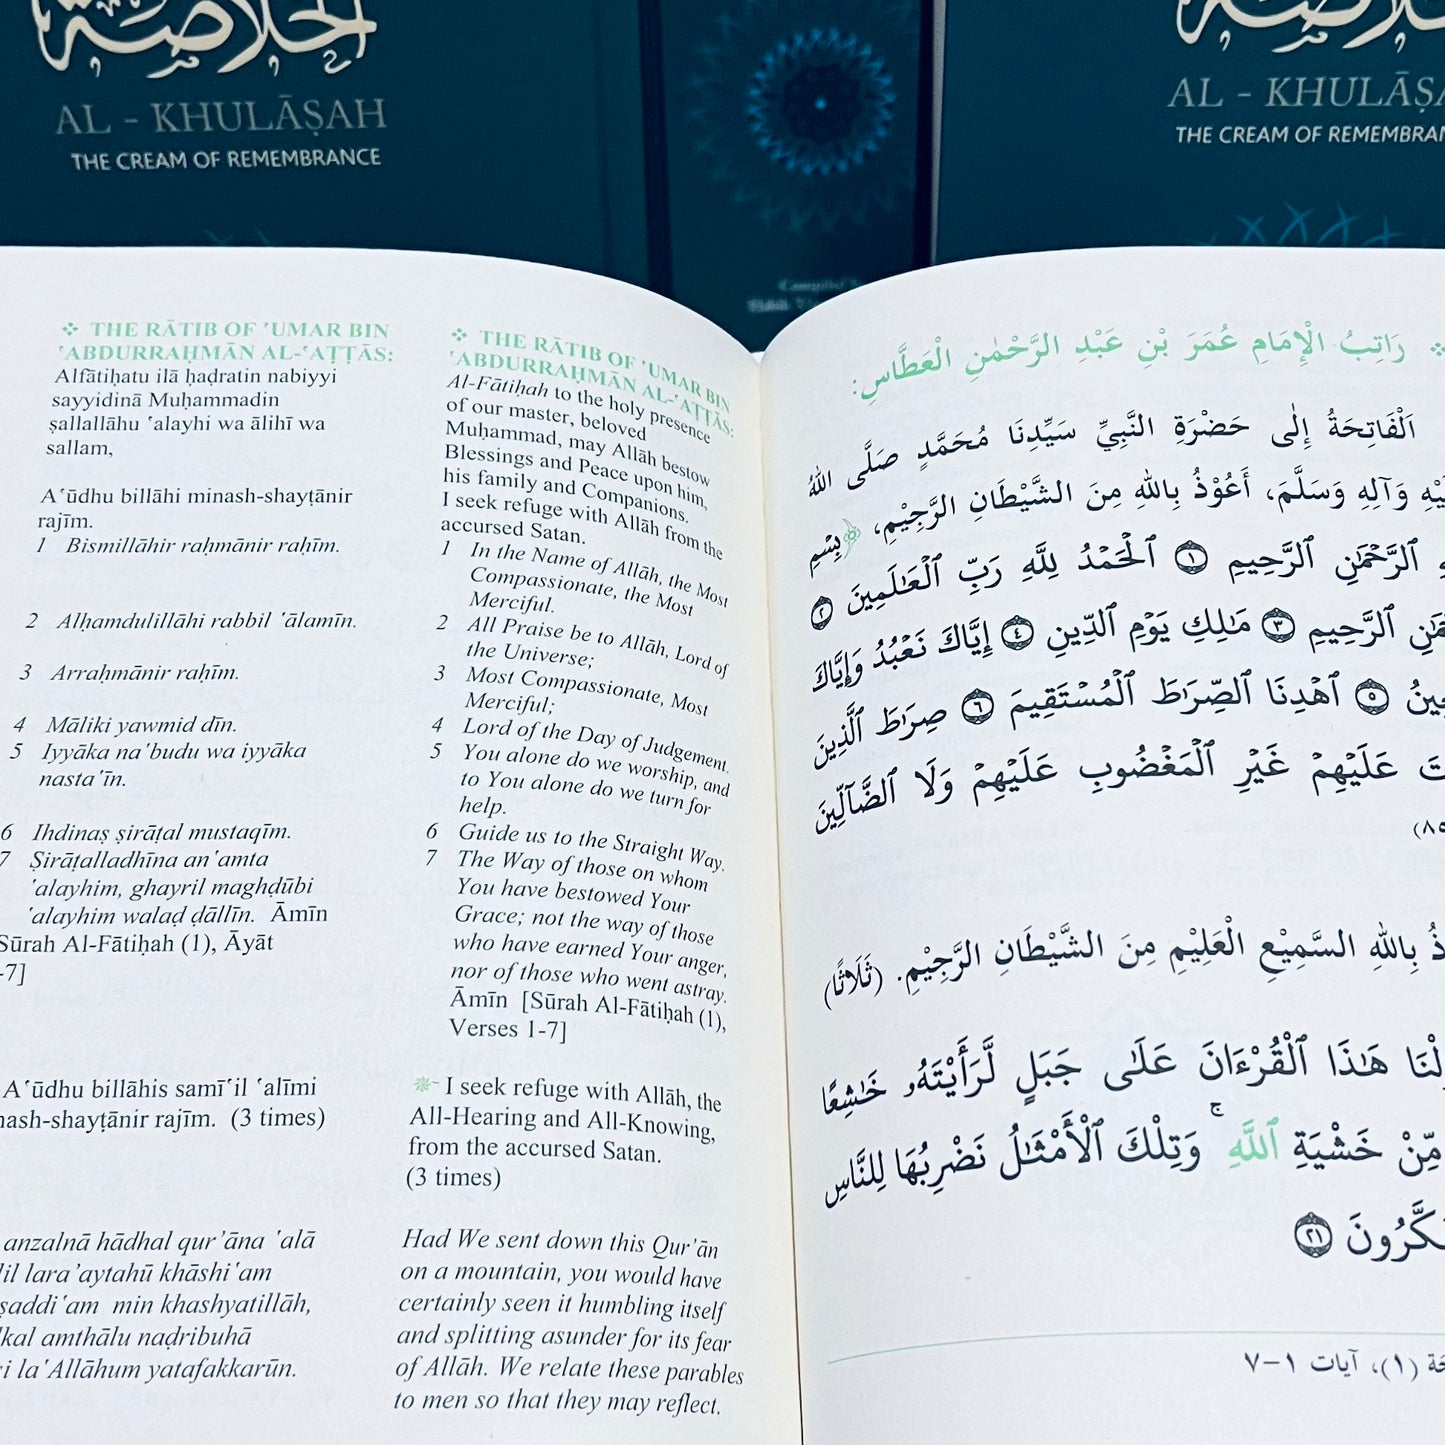 الخلاصة
AL - KHULĀṢAH
THE CREAM OF REMEMBRANCE
AL - KHULĀṢA
THE CREAM OF REMEMBRAN
THE RĀTIB OF ʻUMAR BIN
ʻABDURRAḤMĀN AL-ʻAṬṬĀS:
Alfātiḥatu ilā ḥaḍratin nabiyyi
sayyidinā Muḥammadin
ṣallallāhu ʻalayhi wa ālihī wa
sallam,
Aʻūdhu billāhi minash-shayṭānir
rajīm.
1 Bismillāhir raḥmānir raḥīm.
2 Alḥamdulillāhi rabbil ʻālamīn.
3 Arraḥmānir raḥīm.
4 Māliki yawmid dīn.
5 Iyyāka naʻbudu wa iyyāka
nastaʻīn.
6 Ihdinaṣ ṣirāṭal mustaqīm.
7 Ṣirāṭalladhīna anʻamta
ʻalayhim, ghayril maghḍūbi
ʻalayhim walaḍ ḍāllīn. Āmīn
Sūrah Al-Fātiḥah (1), Āyāt
-7]
Aʻūdhu billāhis samīʻil ʻalīmi
nash-shayṭānir rajīm. (3 times)
anzalnā hādhal qur’āna ʻalā
lil lara’aytahū khāshiʻam
ṣaddiʻam min khashyatillāh,
lkal amthālu naḍribuhā
si laʻAllāhum yatafakkarūn.
THE RĀTIB OF ʻUMAR BIN
ʻABDURRAḤMĀN AL-ʻAṬṬĀS:
Al-Fātiḥah to the holy presence
of our master, beloved
Muḥammad, may Allāh bestow
Blessings and Peace upon him,
his family and Companions.
I seek refuge with Allāh from the
accursed Satan.
1 In the Name of Allāh, the Most
Compassionate, the Most
Merciful.
2 All Praise be to Allāh, Lord of
the Universe;
3 Most Compassionate, Most
Merciful;
4 Lord of the Day of Judgement.
5 You alone do we worship, and
to You alone do we turn for
help.
6 Guide us to the Straight Way.
7 The Way of those on whom
You have bestowed Your
Grace; not the way of those
who have earned Your anger,
nor of those who went astray.
Āmīn [Sūrah Al-Fātiḥah (1),
Verses 1-7]
I seek refuge with Allāh, the
All-Hearing and All-Knowing,
from the accursed Satan.
(3 times)
Had We sent down this Qur’ān
on a mountain, you would have
certainly seen it humbling itself
and splitting asunder for its fear
of Allāh. We relate these parables
to men so that they may reflect.
رَاتِبُ الْإِمَامِ عُمَرَ بْنِ عَبْدِ الرَّحْمٰنِ الْعَطَّاسِ:
اَلْفَاتِحَةُ إِلٰى حَضْرَةِ النَّبِيِّ سَيِّدِنَا مُحَمَّدٍ صَلَّى اللهُ
لَيْهِ وَآلِهِ وَسَلَّمَ، أَعُوْذُ بِاللهِ مِنَ الشَّيْطَانِ الرَّجِيْمِ، ﴿بِسْمِ
ٱلرَّحْمَٰنِ ٱلرَّحِيمِ ١ ٱلْحَمْدُ لِلَّهِ رَبِّ ٱلْعَٰلَمِينَ ٢
ٱلرَّحِيمِ ٣ مَٰلِكِ يَوْمِ ٱلدِّينِ ٤ إِيَّاكَ نَعْبُدُ وَإِيَّاكَ
عِينُ ٥ ٱهْدِنَا ٱلصِّرَٰطَ ٱلْمُسْتَقِيمَ ٦ صِرَٰطَ ٱلَّذِينَ
تَ عَلَيْهِمْ غَيْرِ ٱلْمَغْضُوبِ عَلَيْهِمْ وَلَا ٱلضَّآلِّينَ
ذُ بِاللهِ السَّمِيْعِ الْعَلِيْمِ مِنَ الشَّيْطَانِ الرَّجِيْمِ. (ثَلَاثًا)
زَلْنَا هَٰذَا ٱلْقُرْءَانَ عَلَىٰ جَبَلٍ لَّرَأَيْتَهُۥ خَٰشِعًا
مِّنْ خَشْيَةِ ٱللَّهِ ۚ وَتِلْكَ ٱلْأَمْثَٰلُ نَضْرِبُهَا لِلنَّاسِ
فَكَّرُونَ ٢١
حة (١)، آيات ١-٧